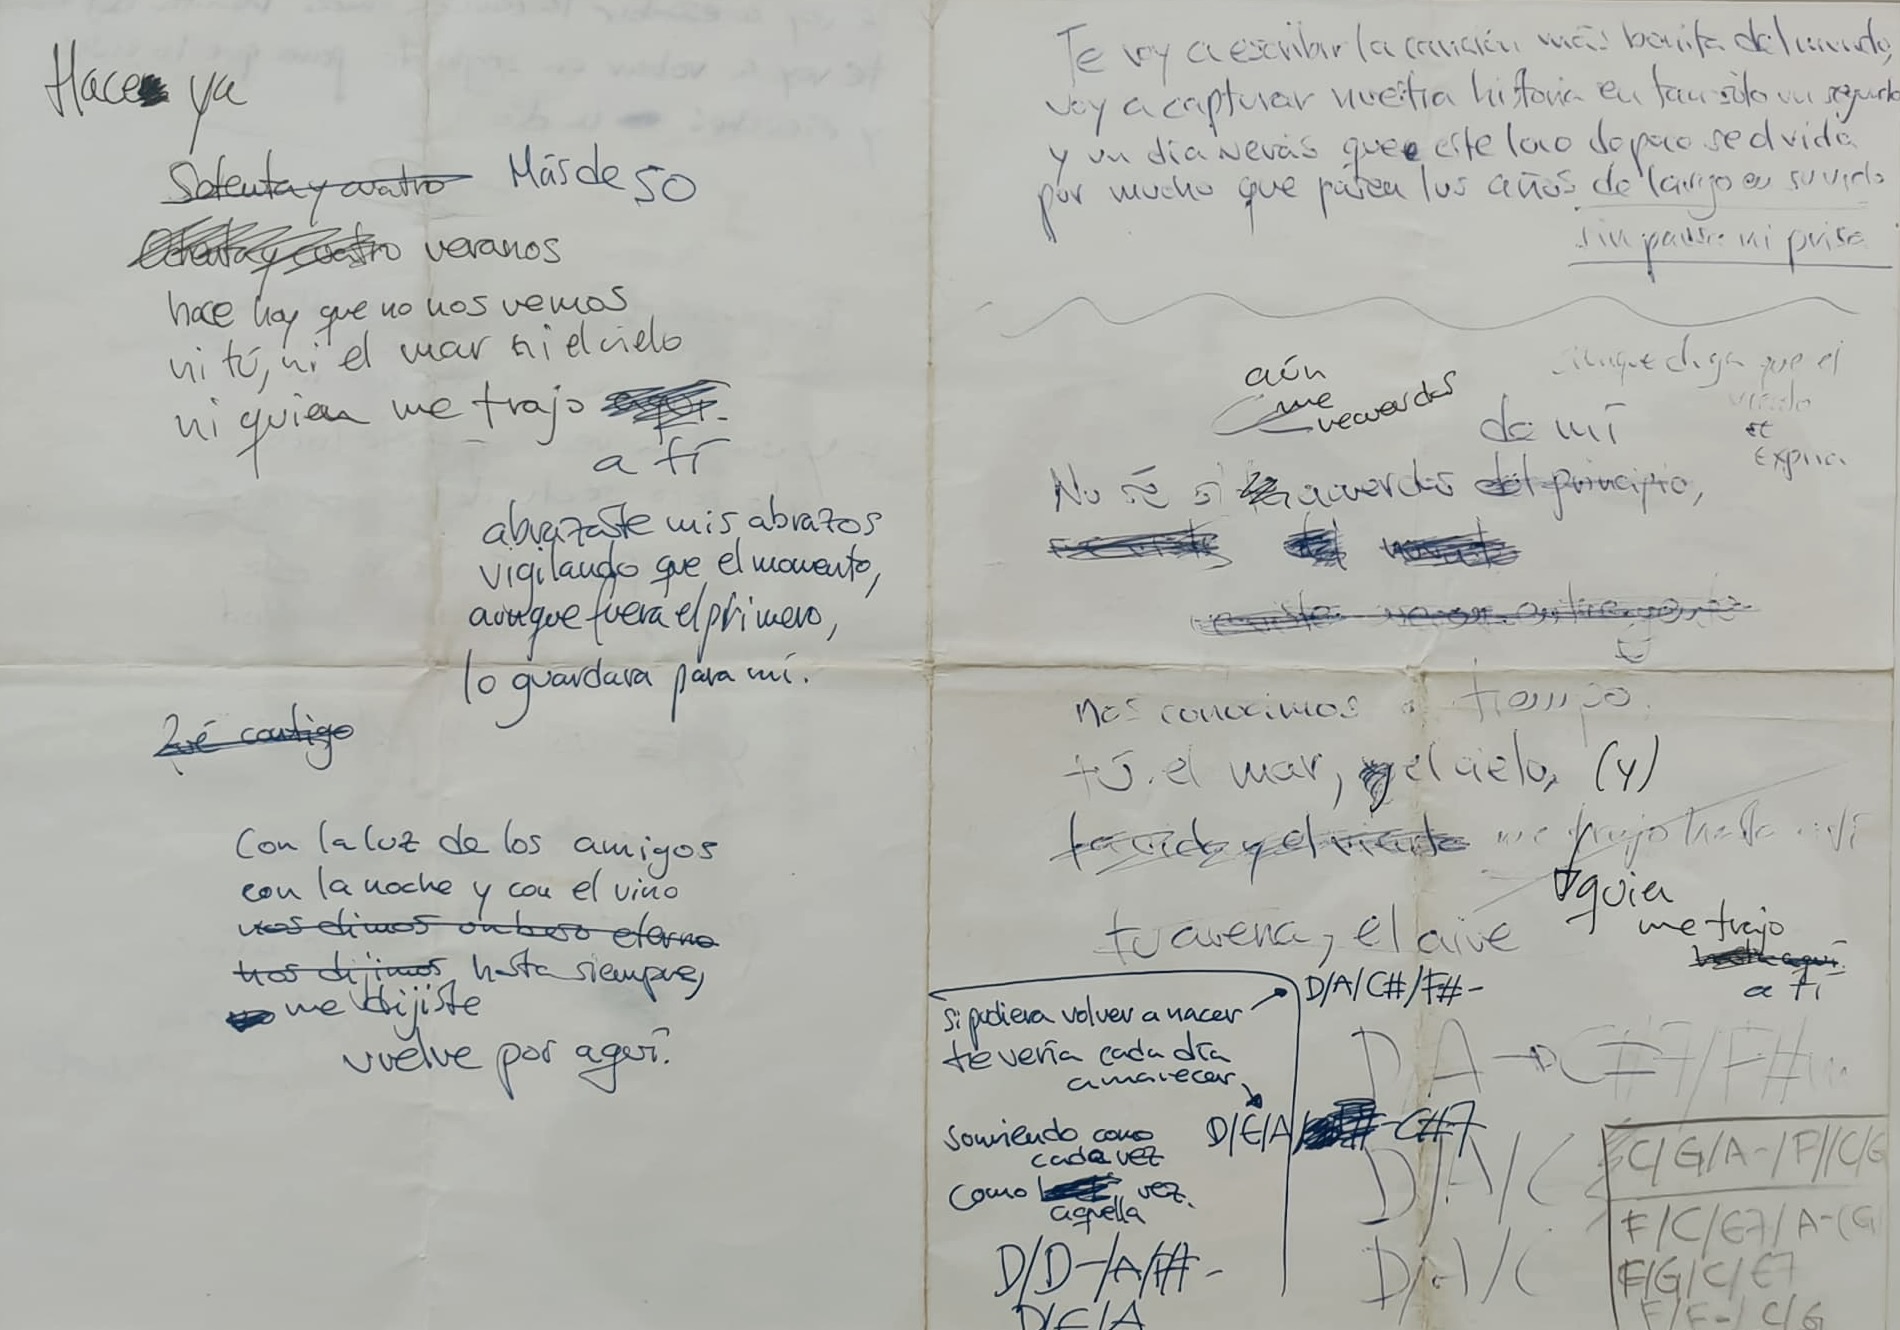 Hace ya
Setenta y cuatro Más de 50
Ochenta y cuatro veranos
hace hoy que no nos vemos
ni tú, ni el mar ni el cielo
ni quien me trajo aquí.
a tí
abrazaste mis abrazos
vigilando que el momento,
aunque fuera el primero,
lo guardara para mí.
contigo
Con la luz de los amigos
con la noche y con el vino
nos dimos un beso eterno
nos dijimos hasta siempre,
me dijiste
vuelve por aquí.
Te voy a escribir la canción más bonita del mundo,
voy a capturar nuestra historia en tan sólo un segundo
y un día verás que este loco de poco se olvida
por mucho que pasen los años de largo en su vida
sin pausa ni prisa
aunque diga que el
viento
et
explica
aún
me
recuerdas
de mí
No sé si acuerdas del principio,
nos conocimos a tiempo.
tú. el mar, y el cielo, (y)
me trajo hasta aquí
quien
me trajo
hasta aquí.
a tí
tu arena, el aire
D/A/C#/F#-
si pudiera volver a nacer
te vería cada día
amanecer
D A → C#7/F#m
D/E/A/ C#7
sonriendo como
cada vez
como vez.
aquella
D/A/C
D/A/C
D/D-/A/F#-
D/E/A
C/G/A-/F//C/G
F/C/E7/A-(G
F/G/C/E7
F/F-/C/G